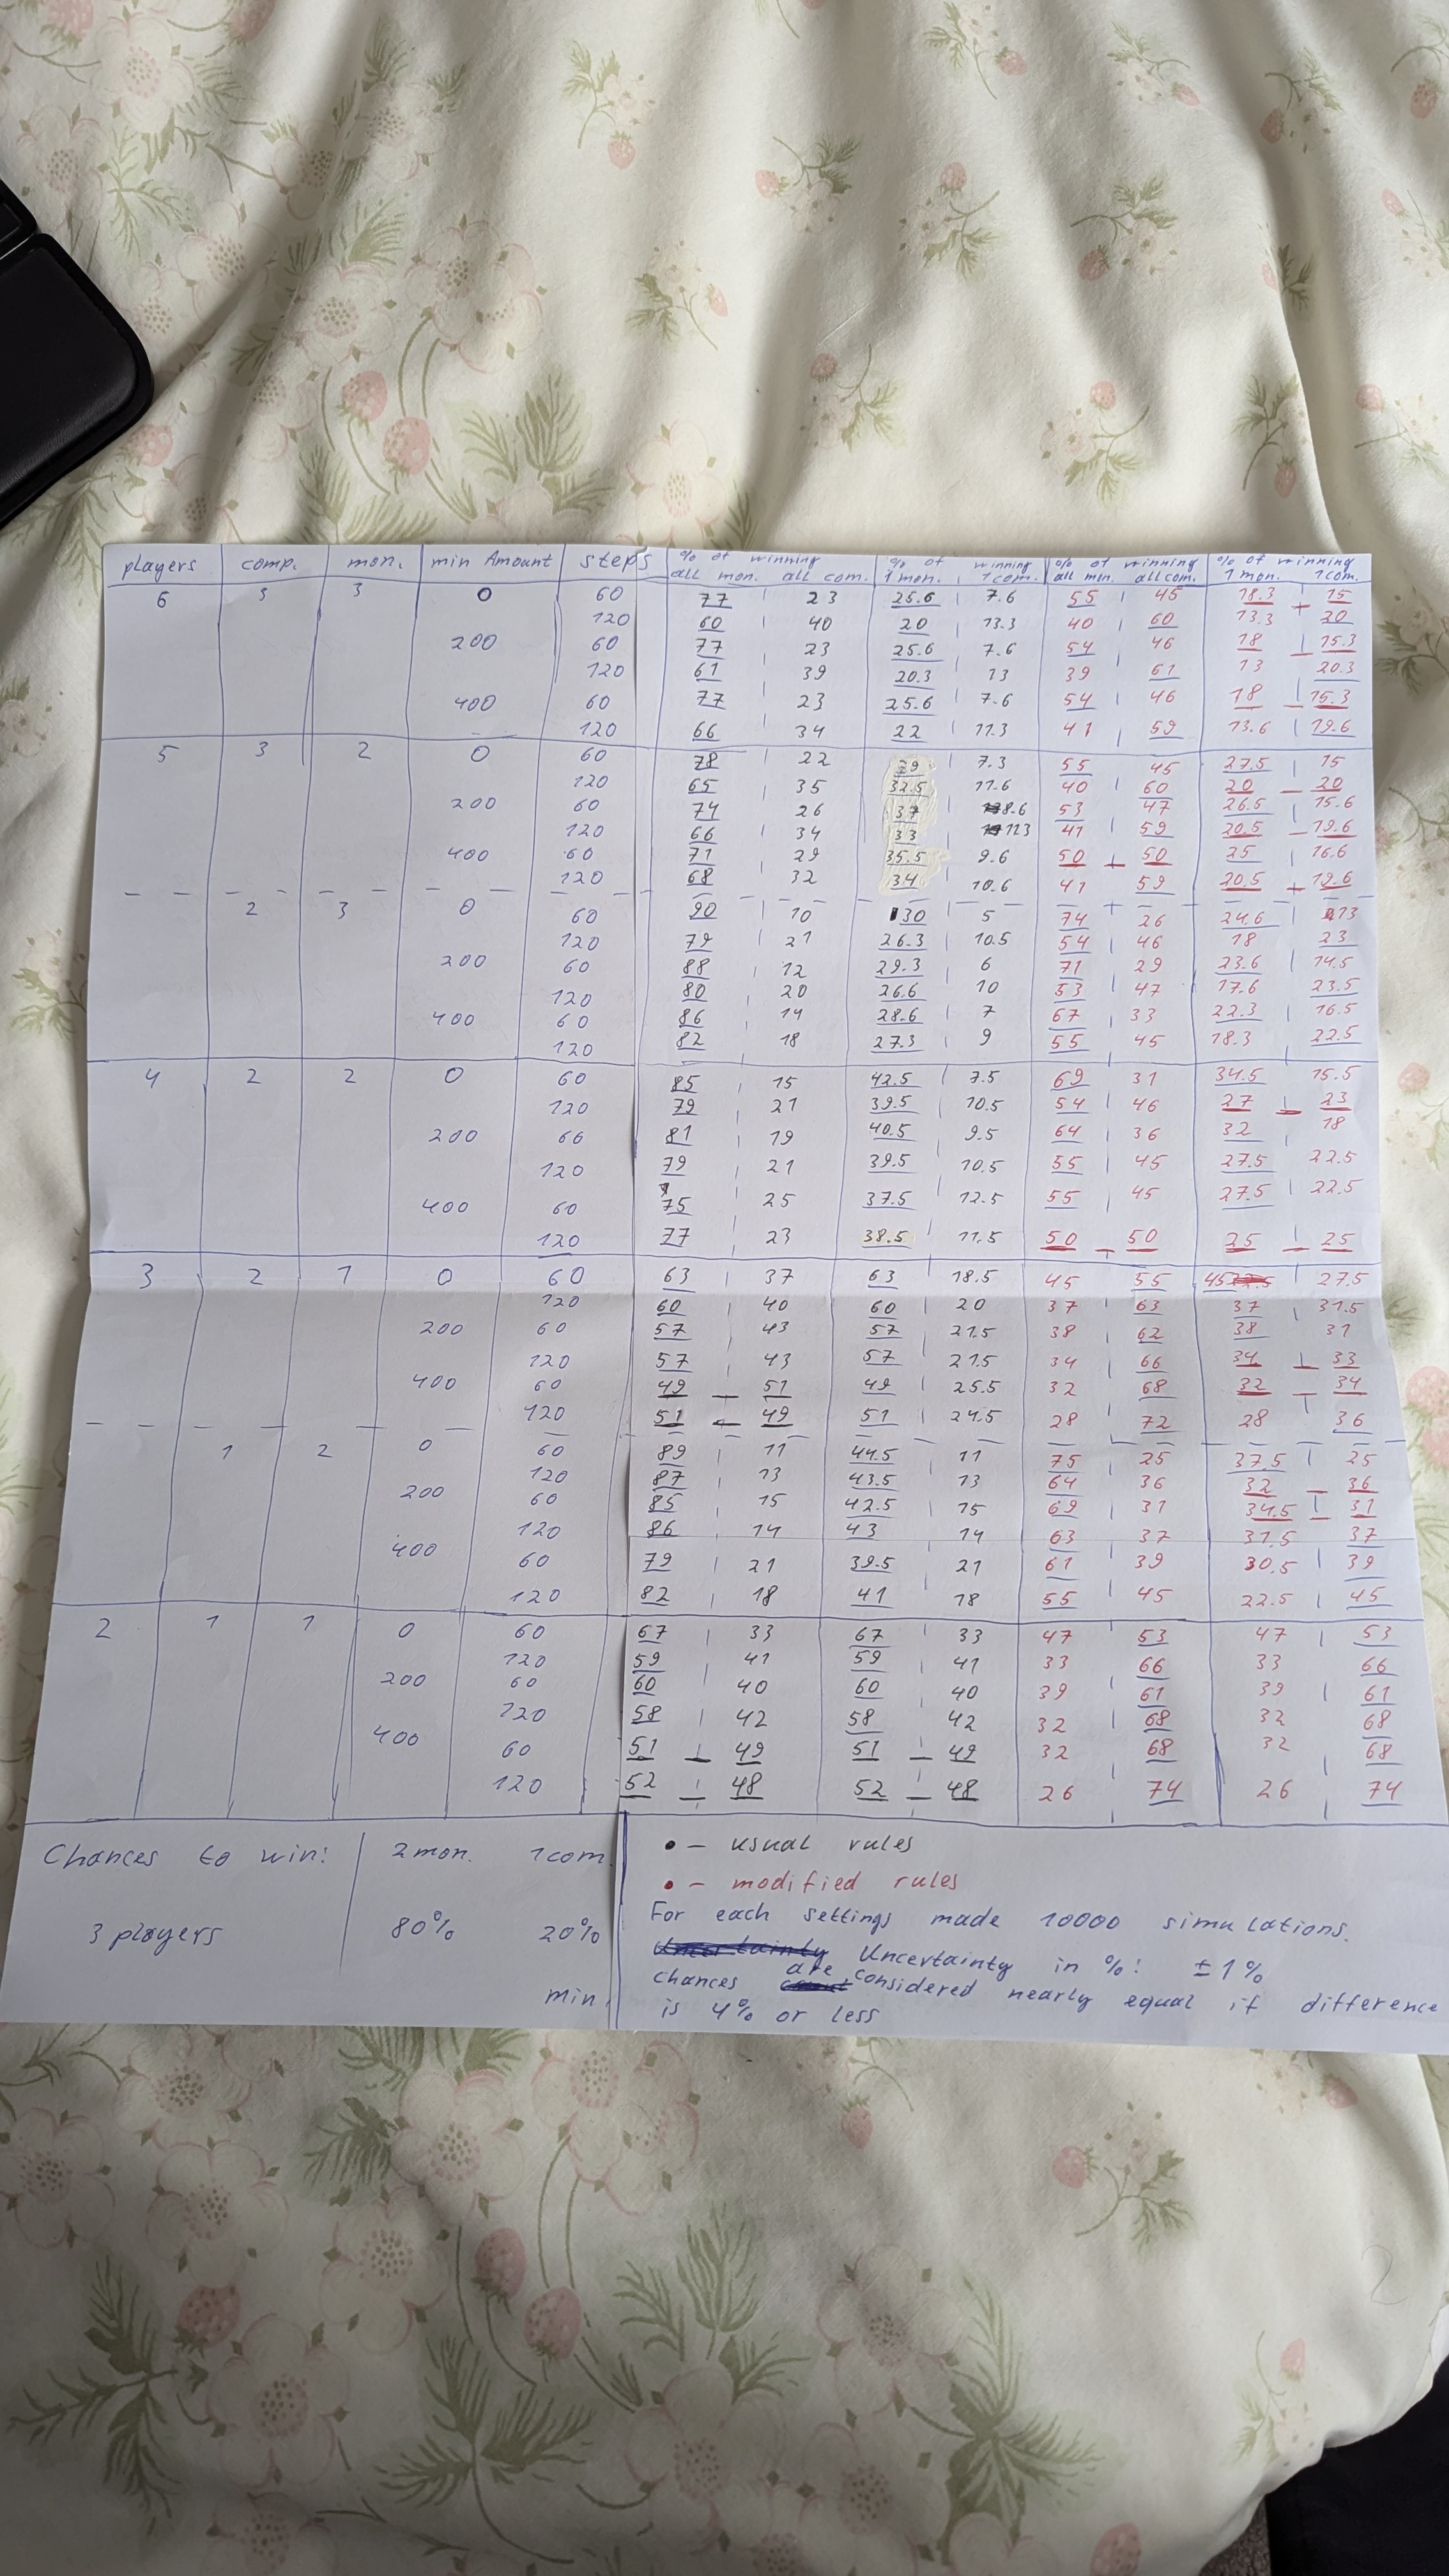 players comp. mon. min Amount steps % of winning all mon. all com. % of winning 1 mon. 1 com. % of winning all mon. all com. % of winning 1 mon. 1 com.
6 3 3 0 60 77 | 23 25.6 | 7.6 55 | 45 18.3 – 15
120 60 | 40 20 | 13.3 40 | 60 13.3 | 20
200 60 77 | 23 25.6 | 7.6 54 | 46 18 – 15.3
120 61 | 39 20.3 | 13 39 | 61 13 | 20.3
400 60 77 | 23 25.6 | 7.6 54 | 46 18 – 15.3
120 66 | 34 22 | 11.3 41 | 59 13.6 | 19.6
5 3 2 0 60 78 | 22 29 | 7.3 55 | 45 27.5 | 15
120 65 | 35 32.5 | 11.6 40 | 60 20 – 20
200 60 74 | 26 37 8.6 53 | 47 26.5 | 15.6
120 66 | 34 33 113 41 | 59 20.5 – 19.6
400 60 71 | 29 35.5 | 9.6 50 – 50 25 | 16.6
120 68 | 32 34 | 10.6 41 | 59 20.5 – 19.6
2 3 0 60 90 | 10 30 | 5 74 | 26 24.6 | 13
120 79 | 21 26.3 | 10.5 54 | 46 18 | 23
200 60 88 | 12 29.3 | 6 71 | 29 23.6 | 14.5
120 80 | 20 26.6 | 10 53 | 47 17.6 | 23.5
400 60 86 | 14 28.6 | 7 67 | 33 22.3 | 16.5
120 82 | 18 27.3 | 9 55 | 45 18.3 | 22.5
4 2 2 0 60 85 | 15 42.5 | 7.5 69 | 31 34.5 | 15.5
120 79 | 21 39.5 | 10.5 54 | 46 27 – 23
200 60 81 | 19 40.5 | 9.5 64 | 36 32 | 18
120 79 | 21 39.5 | 10.5 55 | 45 27.5 | 22.5
400 60 75 | 25 37.5 | 12.5 55 | 45 27.5 | 22.5
120 77 | 23 38.5 | 11.5 50 – 50 25 – 25
3 2 1 0 60 63 | 37 63 | 18.5 45 | 55 45 | 27.5
120 60 | 40 60 | 20 37 | 63 37 | 31.5
200 60 57 | 43 57 | 21.5 38 | 62 38 | 31
120 57 | 43 57 | 21.5 34 | 66 34 – 33
400 60 49 – 51 49 | 25.5 32 | 68 32 – 34
120 51 – 49 51 | 24.5 28 | 72 28 | 36
1 2 0 60 89 | 11 44.5 | 11 75 | 25 37.5 | 25
120 87 | 13 43.5 | 13 64 | 36 32 – 36
200 60 85 | 15 42.5 | 15 69 | 31 34.5 – 31
120 86 | 14 43 | 14 63 | 37 31.5 | 37
400 60 79 | 21 39.5 | 21 61 | 39 30.5 | 39
120 82 | 18 41 | 18 55 | 45 22.5 | 45
2 1 1 0 60 67 | 33 67 | 33 47 | 53 47 | 53
120 59 | 41 59 | 41 33 | 66 33 | 66
200 60 60 | 40 60 | 40 39 | 61 39 | 61
120 58 | 42 58 | 42 32 | 68 32 | 68
400 60 51 – 49 51 – 49 32 | 68 32 | 68
120 52 – 48 52 – 48 26 | 74 26 | 74
Chances to win: 2 mon. 1 com.
3 players 80% 20%
min.
• – usual rules
• – modified rules
For each settings made 10000 simulations.
Uncertainty in %: ±1%
chances are considered nearly equal if difference
is 4% or less